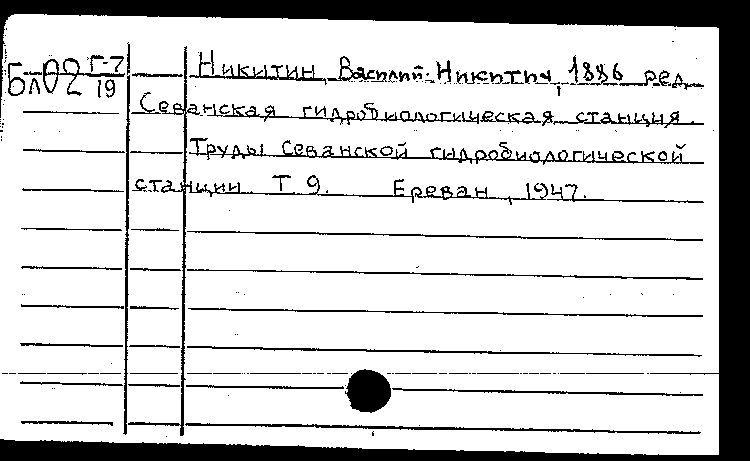 Бл02 Г-7/19
Никитин, Василий Никитич, 1886 ред.
Севанская гидробиологическая станция.
Труды Севанской гидробиологической
станции. Т. 9. Ереван, 1947.